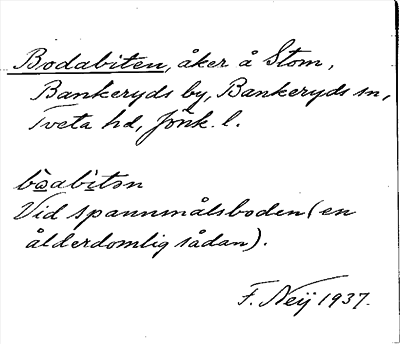 Bodabiten, åker å Stom,
Bankeryds by, Bankeryds sn,
Tveta hd, Jönk. l.
bòsabitən
Vid spannmålsboden (en
ålderdomlig sådan).
F. Neij 1937.